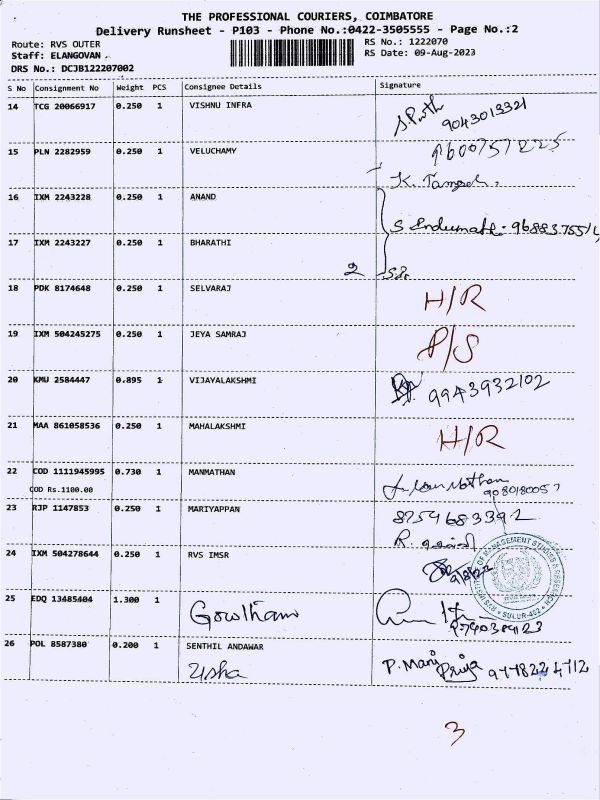 THE PROFESSIONAL COURIERS, COIMBATORE
Delivery Runsheet - P103 - Phone No.:0422-3505555 - Page No.:2
Route: RVS OUTER
RS No.: 1222070
Staff: ELANGOVAN
RS Date: 09-Aug-2023
DRS No.: DCJB122207002
S No Consignment No Weight PCS Consignee Details Signature
14 TCG 20066917 0.250 1 VISHNU INFRA
9043013321
15 PLN 2282959 0.250 1 VELUCHAMY
K.
16 IXM 2243228 0.250 1 ANAND
S Indumathi
17 IXM 2243227 0.250 1 BHARATHI
2
18 PDK 8174648 0.250 1 SELVARAJ H/R
19 IXM 504245275 0.250 1 JEYA SAMRAJ P/S
20 KMU 2584447 0.895 1 VIJAYALAKSHMI 9943932102
21 MAA 861058536 0.250 1 MAHALAKSHMI H/R
22 COD 1111945995 0.730 1 MANMATHAN
COD Rs.1100.00
23 RJP 1147853 0.250 1 MARIYAPPAN 8754683392
R.
24 IXM 504278644 0.250 1 RVS IMSR
OF MANAGEMENT STUDIES & RESEARCH
SULUR-402
25 EDQ 13485404 1.300 1 Gowtham
26 POL 8587380 0.200 1 SENTHIL ANDAWAR
Usha P. Mari Priya
3